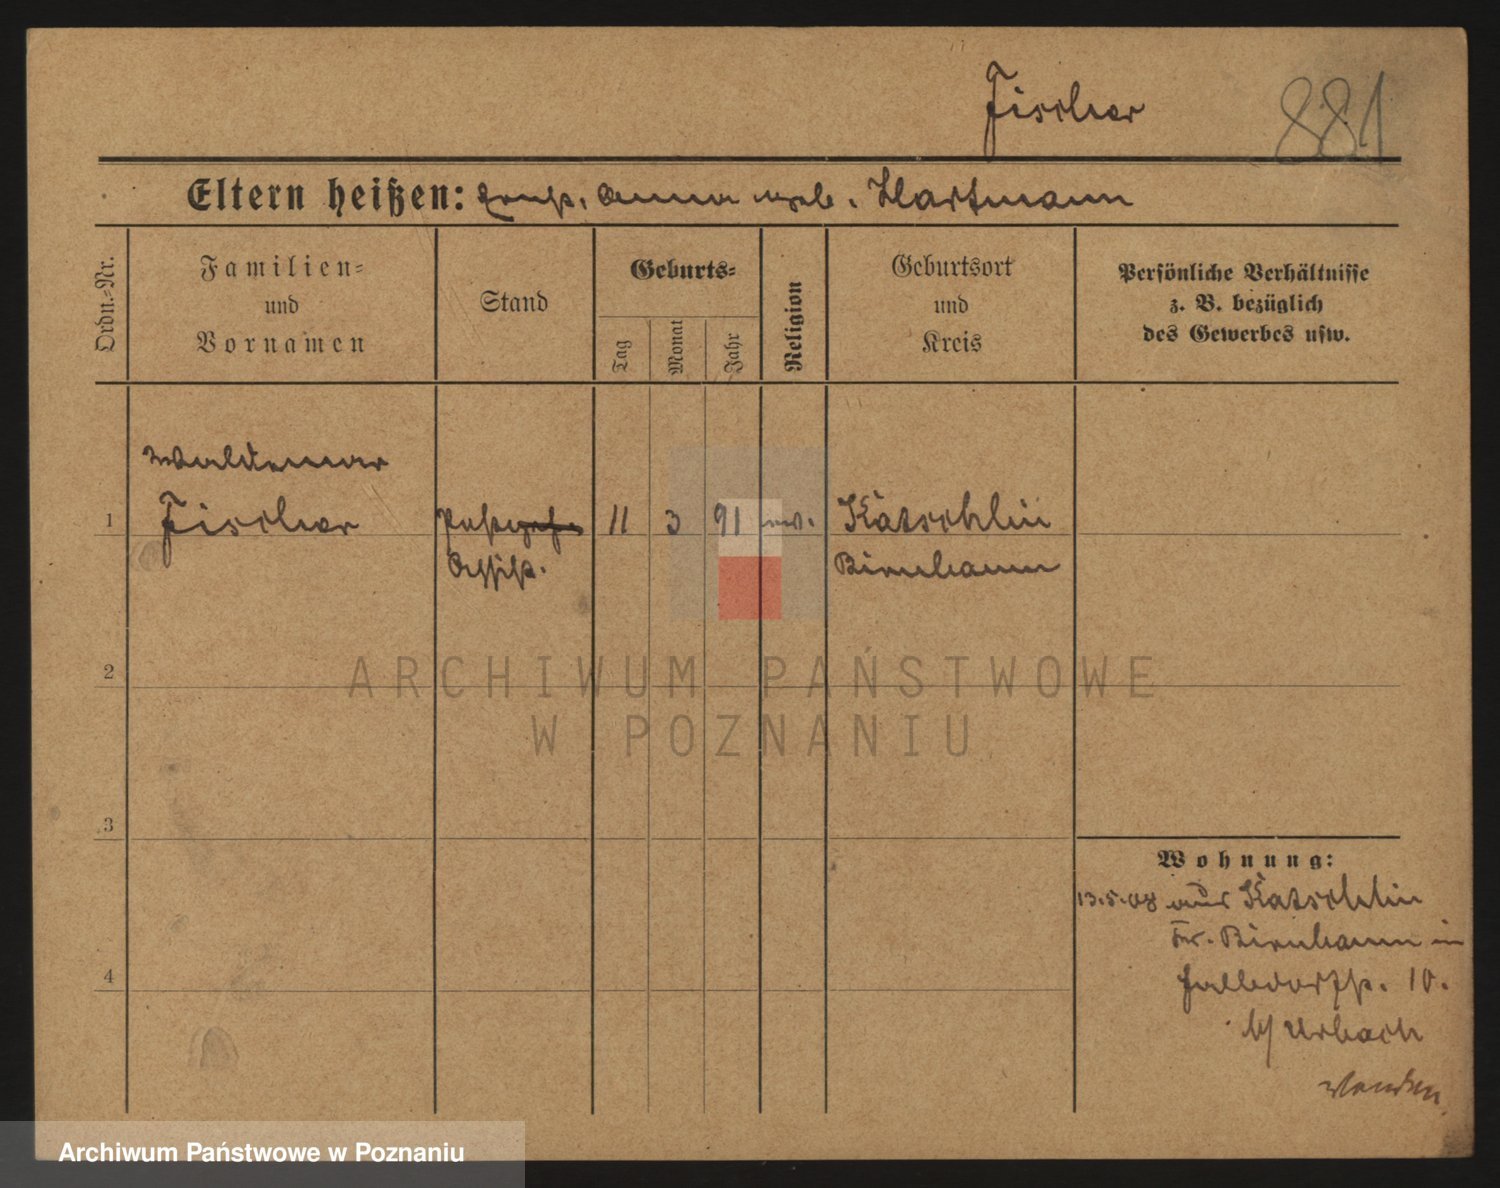 Fischer
881
Eltern heißen: Ernst, Anna geb. Hartmann
Ordn.-Nr.
Familien-
und
Vornamen
Stand
Geburts-
Tag
Monat
Jahr
Religion
Geburtsort
und
Kreis
Persönliche Verhältnisse
z. B. bezüglich
des Gewerbes usw.
Waldemar
1 Fischer
Postgeh.
11 3 91 ev. Katschlin
Assist.
Birnbaum
2
3
4
Wohnung:
13.5.08 aus Katschlin
Kr. Birnbaum in
10.
b/ Urbach
wenden
ARCHIWUM PAŃSTWOWE
W POZNANIU
Archiwum Państwowe w Poznaniu